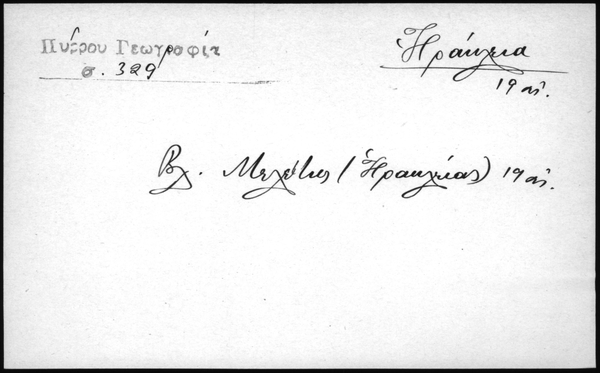 Πύρρου Γεωγραφία
σ. 329
Ἡράκλεια
19 αἰ.
Βλ. Μελέτιος (Ἡρακλείας) 19 αἰ.